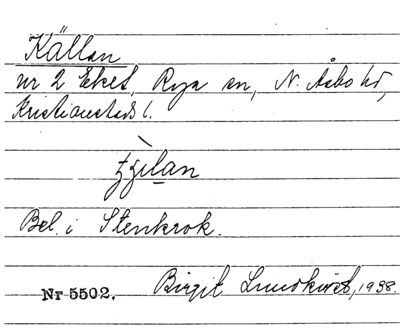 Källan
nr 2 Eket, Rya sn, N. Åsbo hd,
Kristianstads l.
Bel. i Stenkrok.
Nr 5502. Birgit Lundkvist, 1938.